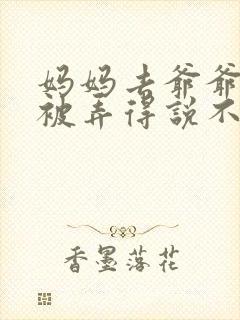 妈妈去爷爷
被弄得说不
香墨落花